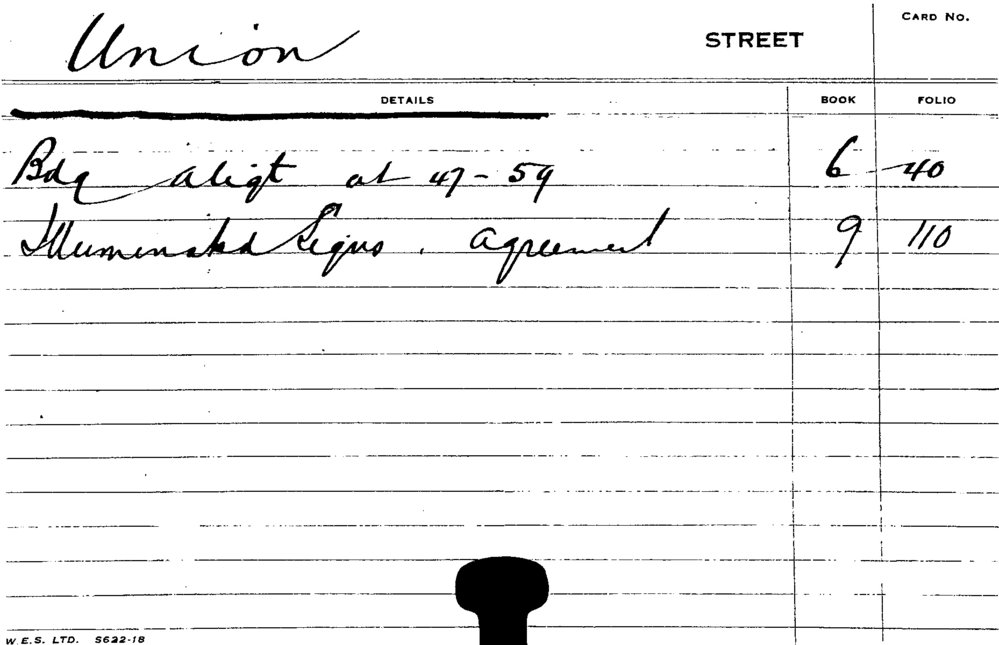 Union STREET CARD NO.
DETAILS BOOK FOLIO
Bdg aligt at 47-59 6 40
Illuminated Signs. Agreement 9 110
W.E.S. LTD. S622-18